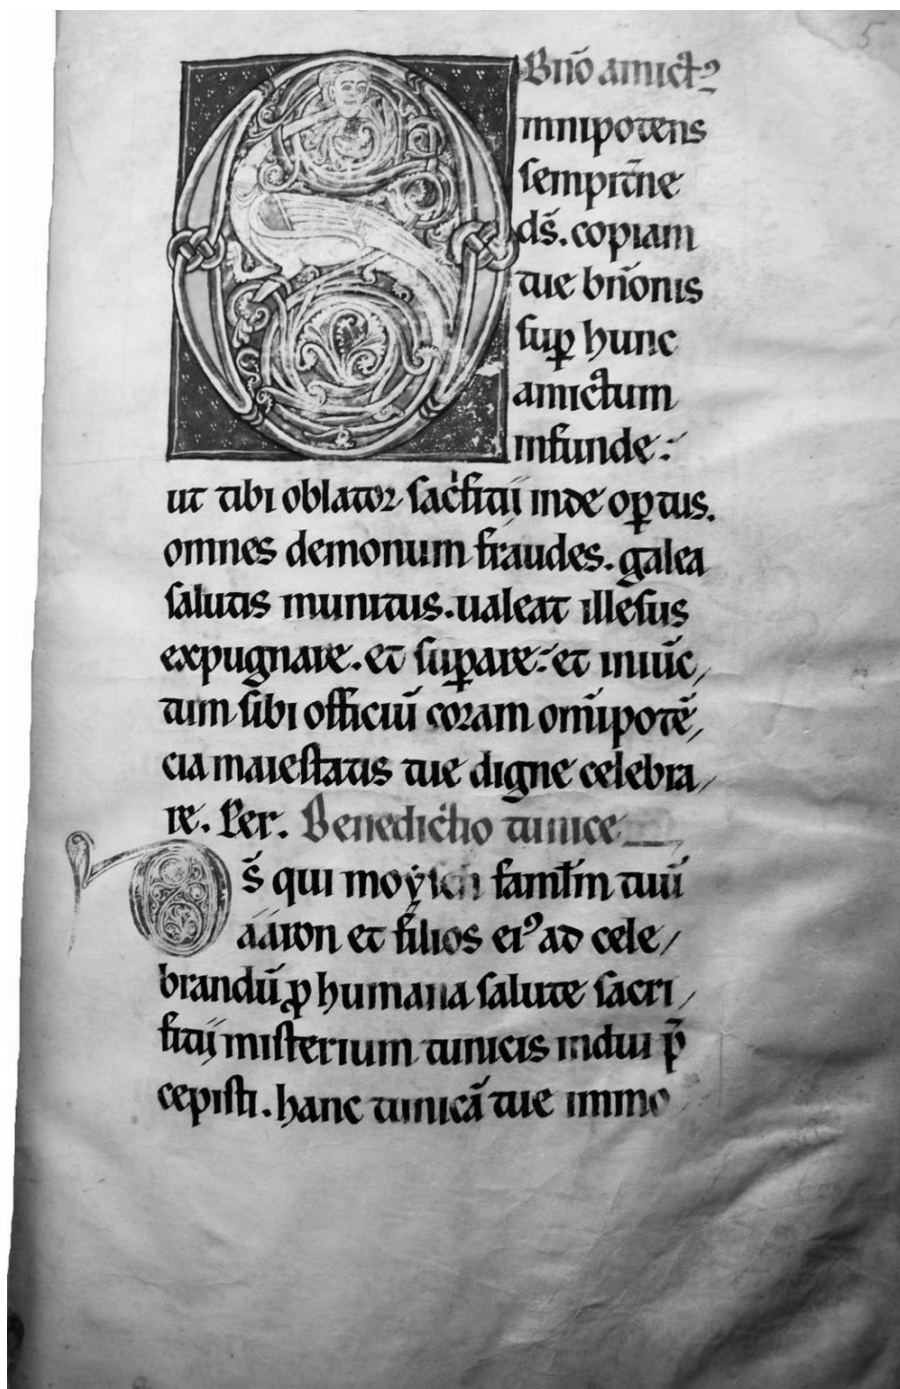 5
Bn̄o amict᷒
Omnipotens
sempit̄ne
ds̄. copiam
tue bn̄onis
suꝑ hunc
amictum
infunde:
ut tibi oblator sac̍fitii inde oꝑtus.
omnes demonum fraudes. galea
salutis munitus. ualeat illesus
expugnare. et suꝑare: et iniūc/
tum sibi officiū coram om̄ipotē/
cia maiestatis tue digne celebra/
re. Per. Benedict̍io tunice
Ds̄ qui moẏsen famt̄m tuū
ááron et filios ei᷒ ad cele/
brandū ꝓ humana salute sacri/
fitii misterium tunicis indui p̄
cepisti. hanc tunicā tue immo